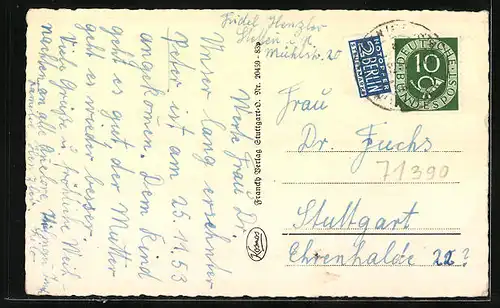 Friedel Henzler
Steffen i.
Mühlstr. 20
Werte Frau Dr.
Unser lang ersehnter
Peter ist am 25.11.53
angekommen. Dem Kind
geht es gut der Mutter
geht es wieder besser.
Viele Grüße u. fröhliche Weih
nachten an all
Franckh Verlag Stuttgart-O. Nr. 20450 - 83b
Kosmos
NOTOPFER
2 BERLIN
STEUERMARKE
DEUTSCHE
BUNDESPOST
10
Frau
Dr. Fuchs
71390
Stuttgart
Ehrenhalde 22?